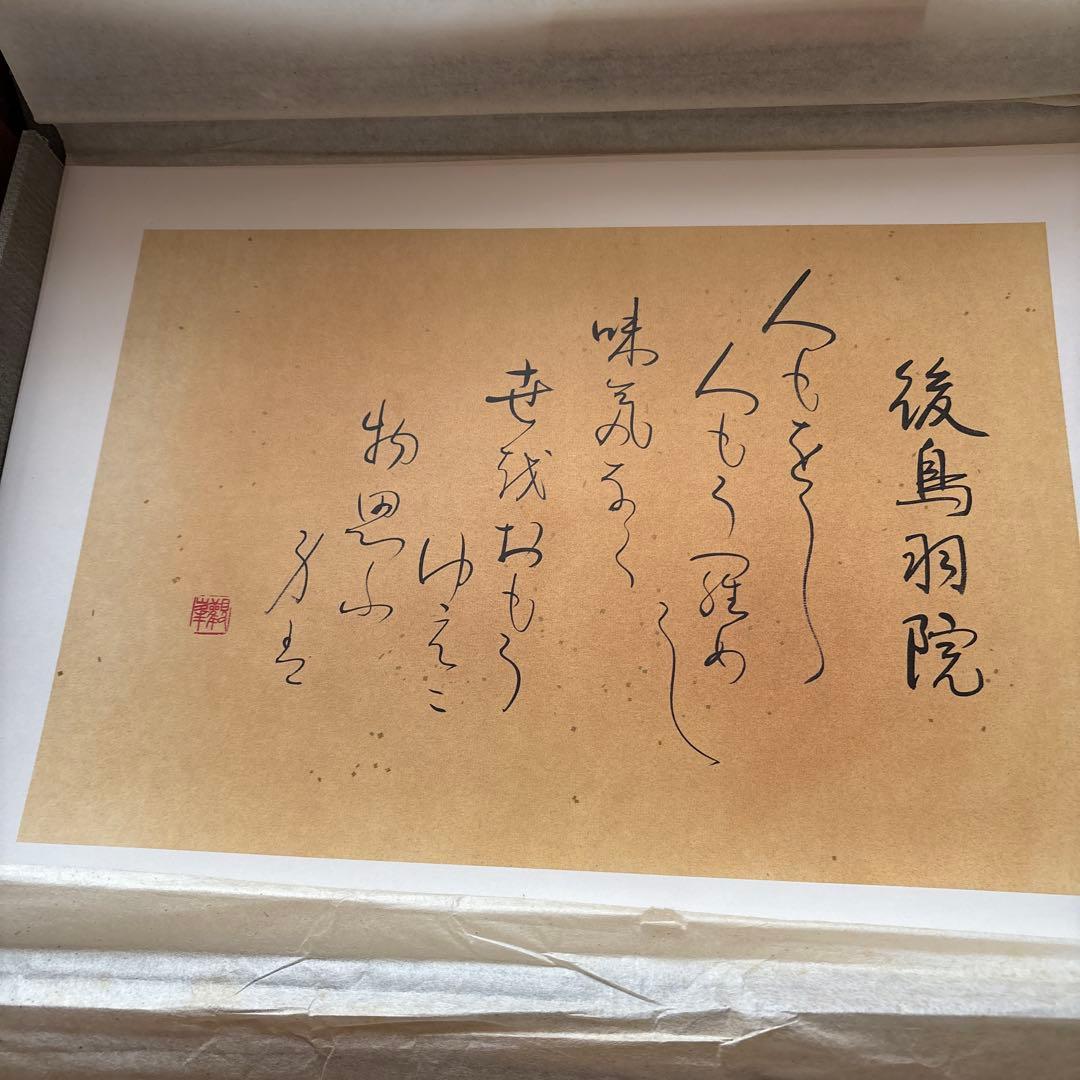 後鳥羽院
人もをし
人もう羅め
し
味気なく
世越おもう
ゆゑに
物思ふ
身は
觀峯